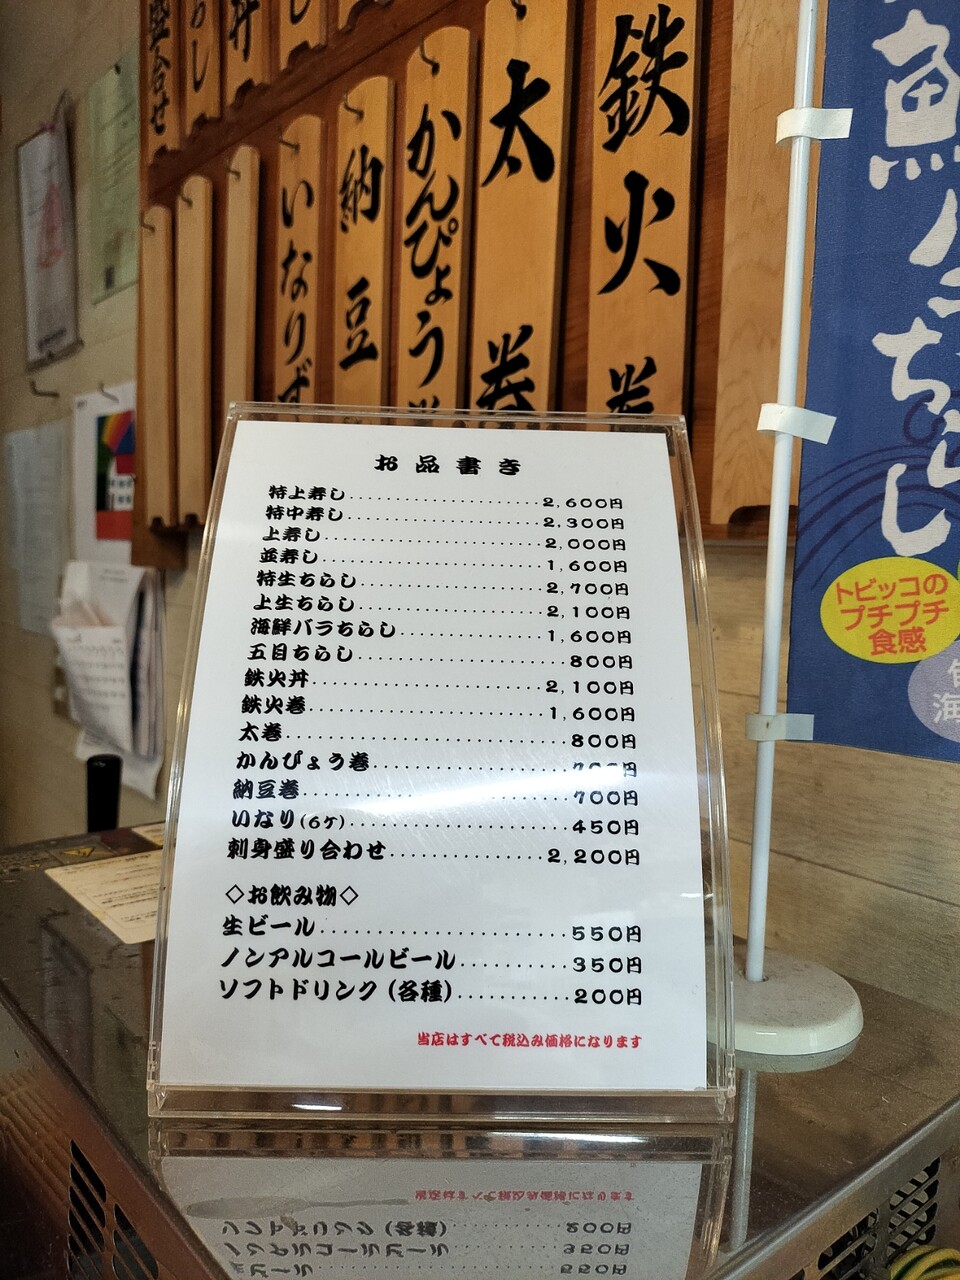 盛合せ
らし
丼
いなりず
納豆
かんぴょう
太巻
鉄火巻
魚バラちらし
トビッコの
プチプチ
食感
海
お品書き
特上寿し......................2,600円
特中寿し......................2,300円
上寿し......................2,000円
並寿し......................1,600円
特生ちらし......................2,700円
上生ちらし......................2,100円
海鮮バラちらし................1,600円
五目ちらし......................800円
鉄火丼......................2,100円
鉄火巻......................1,600円
太巻......................800円
かんぴょう巻......................700円
納豆巻......................700円
いなり(6ケ)......................450円
刺身盛り合わせ................2,200円
◇お飲み物◇
生ビール......................550円
ノンアルコールビール..........350円
ソフトドリンク(各種)...........200円
当店はすべて税込み価格になります